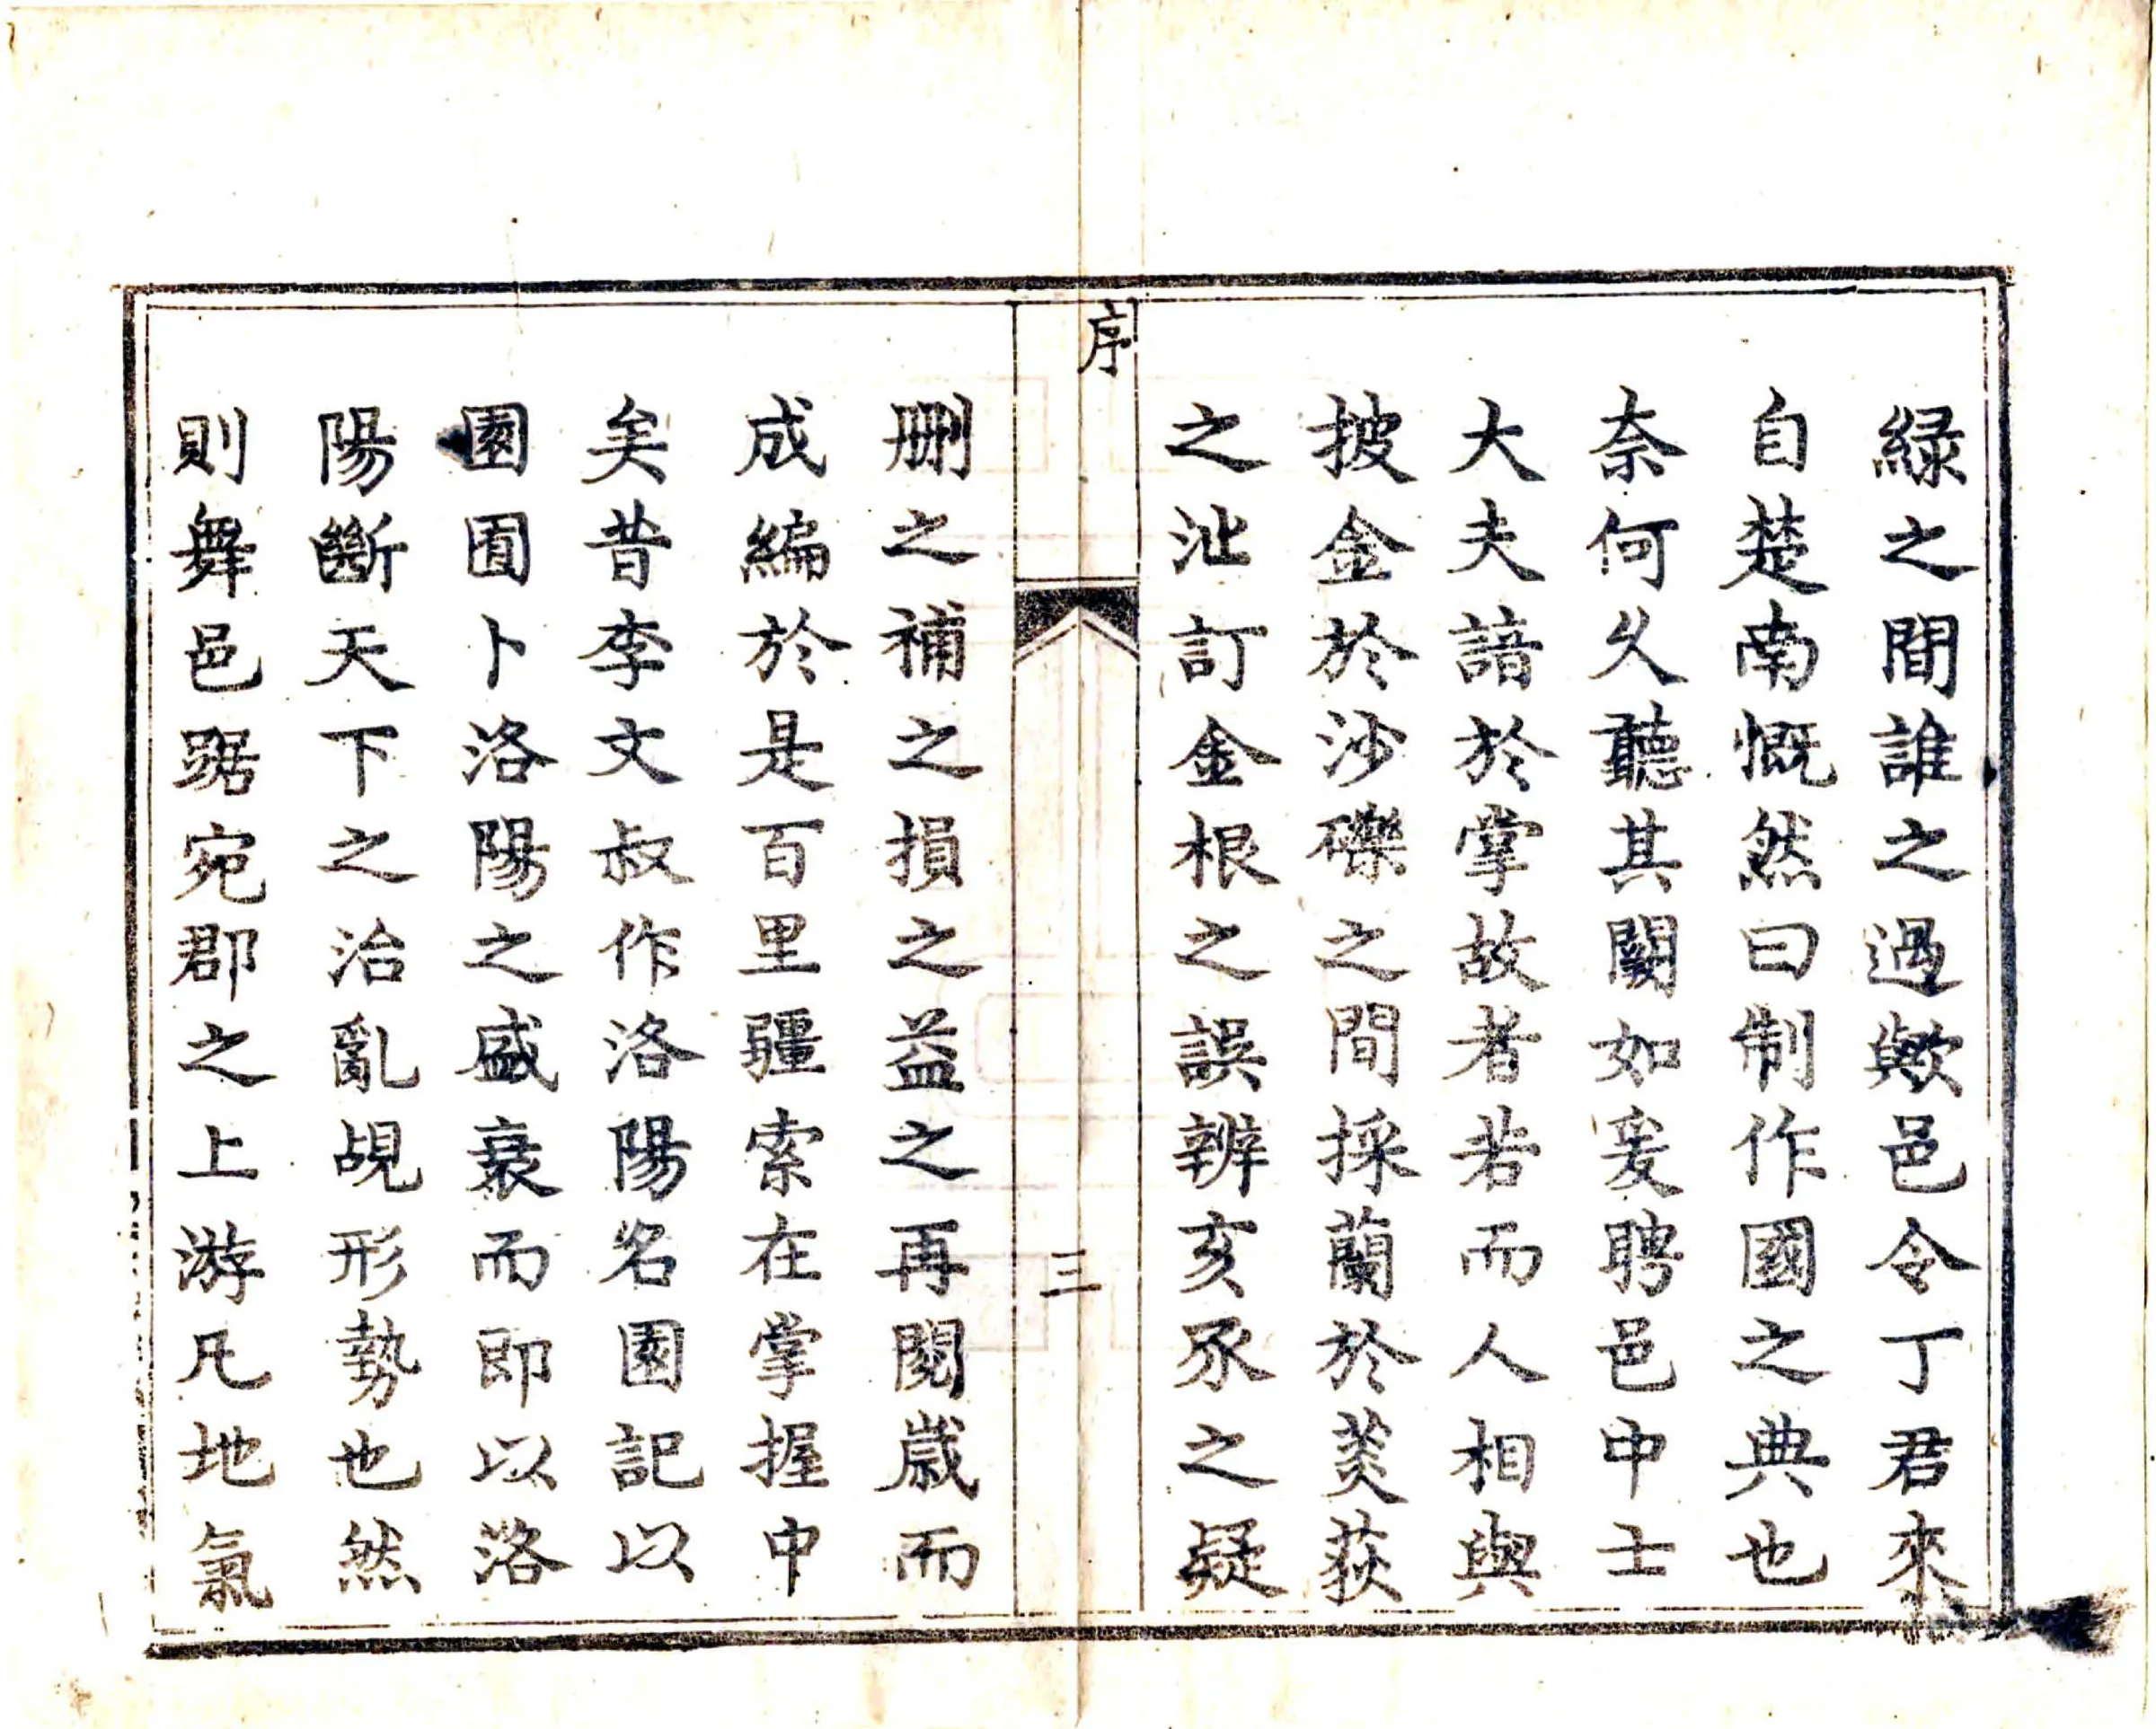 綠之間誰之過歟邑令丁君來
自楚南慨然曰制作國之典也
奈何久聽其闕如爰聘邑中士
大夫諳於掌故者若而人相與
披金於沙礫之間採蘭於菼荻
之沚訂金根之誤辨亥豕之疑
序
三
刪之補之損之益之再閱歲而
成編於是百里疆索在掌握中
矣昔李文叔作洛陽名園記以
園囿卜洛陽之盛衰而即以洛
陽斷天下之治亂覘形勢也然
則舞邑踞宛郡之上游凡地氣